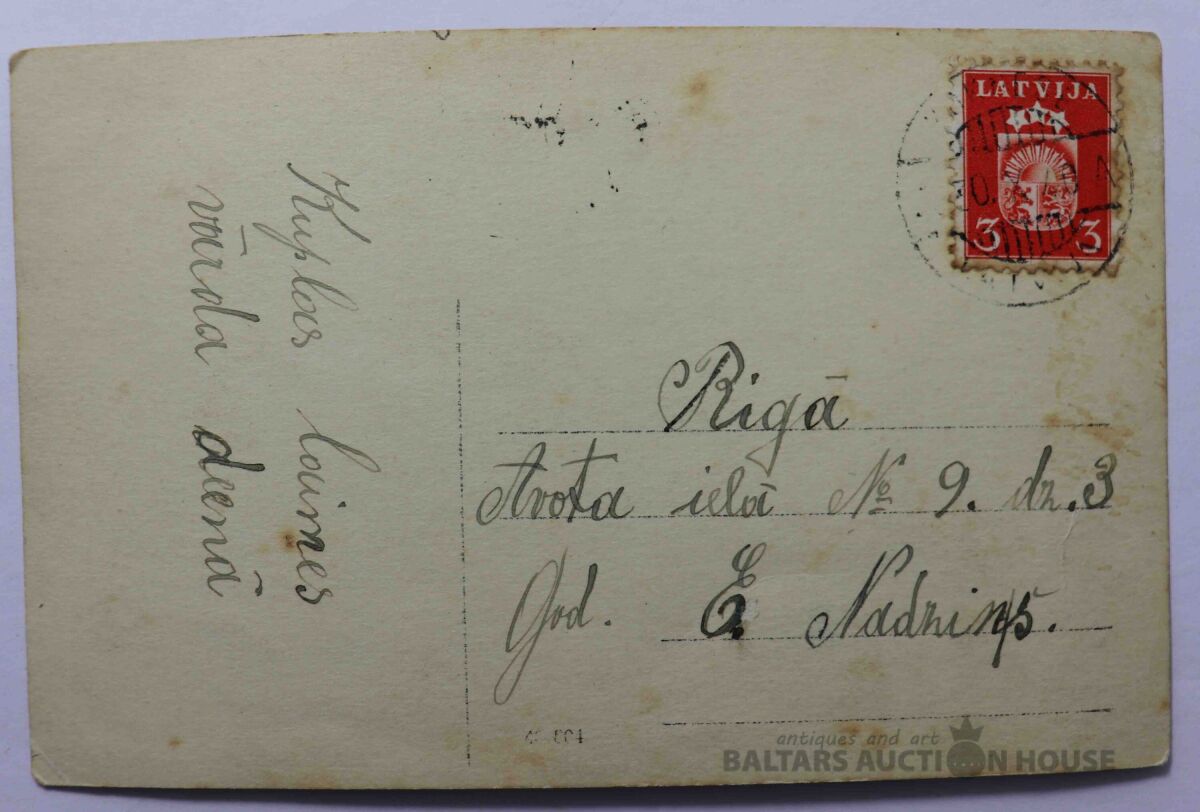 Kuplas laimes
vārda dienā
LATVIJA
3 3
Rigā
Avota ielā № 9. dz. 3
God. E. Nadziņš.
antiques and art
BALTARS AUCTION HOUSE